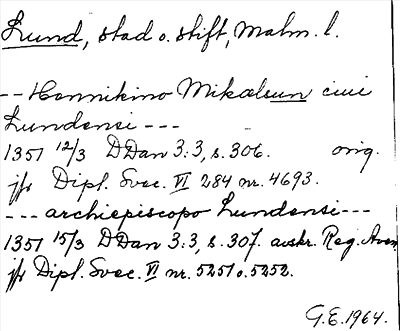 Lund, stad o. stift, Malm. l.
-- Hennikino Mikælsun civi
Lundensi ---
1351 12/3 DDan 3:3, s. 306. orig.
jfr Dipl. Svec. VI 284 nr. 4693.
--- archiepiscopo Lundensi ---
1351 15/3 DDan 3:3, s. 307. avskr. Reg. Aven
jfr Dipl. Svec. VI nr. 5251 o. 5252.
G.E. 1964.